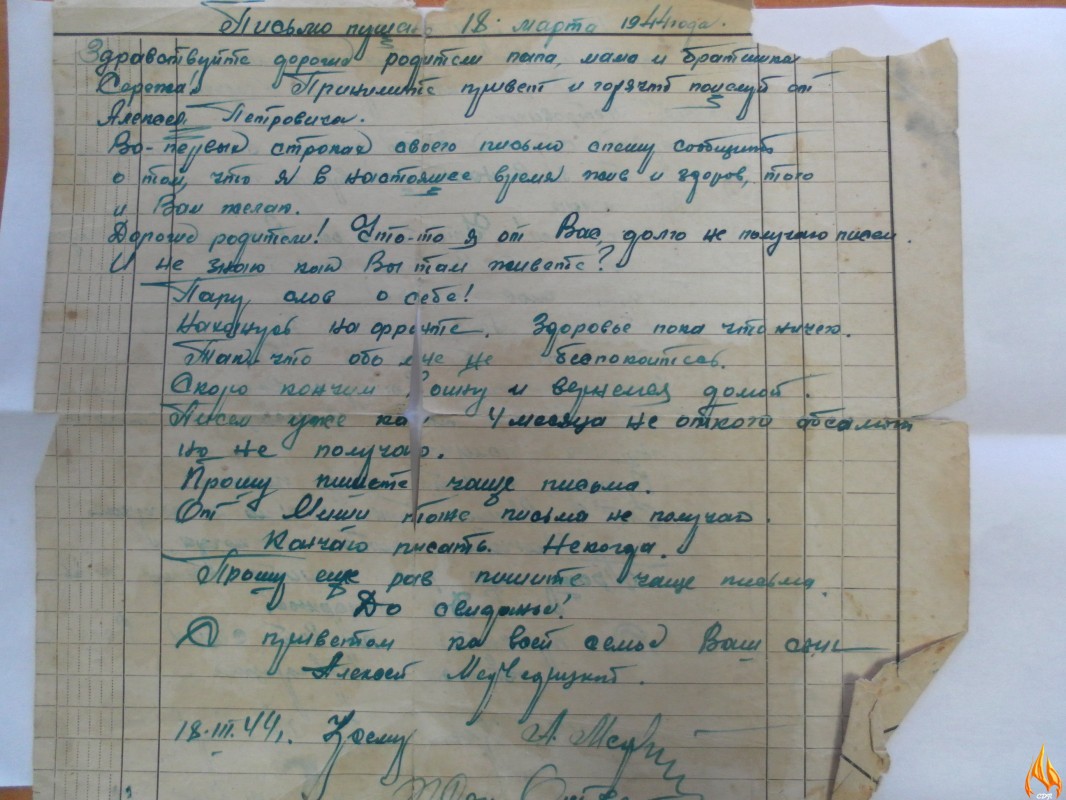 Письмо пущено 18 марта 1944 года.
Здравствуйте дорогие родители папа, мама и братишка
Сережа! Примимите привет и горячий поцелуй от
Алексея Петровича.
Во-первых строках своего письмо спешу сообщить
о том, что я в настоящее время жив и здоров, того
и Вам желаю.
Дорогие родители! Что-то я от Вас долго не получаю писем.
И не знаю как Вы там живете?
Пару слов о себе!
Нахожусь на фронте. Здоровье пока что ничего.
Так что обо мне не беспокойтесь.
Скоро кончим войну и вернемся домой.
Писем уже 4 месяца не от кого абсолют
но не получаю.
Прошу пишете чаще письма.
От Миши тоже письма не получаю.
Кончаю писать. Некогда.
Прошу еще раз пишите чаще письма.
До свиданье!
С приветом ко всей семье Ваш сын
Алексей
18.III.44г.